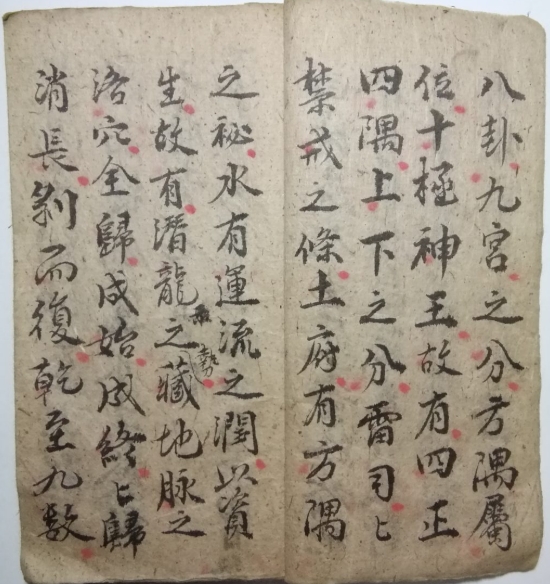 八卦九宮之分方隅屬
位十極神王故有四正
四隅上下之分雷司〻
禁戒之條土府有方隅
之祕水有運流之潤以資
生故有潛龍之藏地脉之
勢
洛穴全歸成始成終〻歸
消長剝而復乾至九数